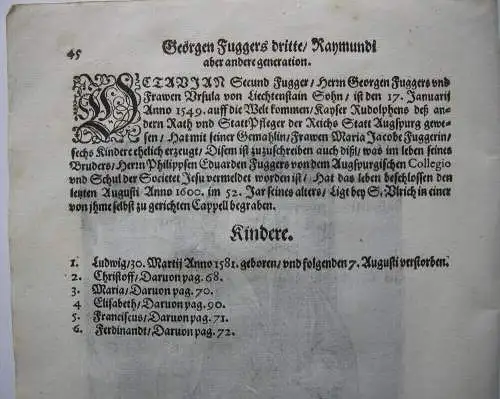 45
Geörgen Fuggers dritte/ Raymundi
aber andere generation.
OCTAVIAN Secund Fugger/ Herrn Georgen Fuggers vnd
Frawen Vrsula von Liechtenstain Sohn/ ist den 17. Januarij
Anno 1549. auff die Welt kommen/ Kayser Rudolphens deß an-
dern Rath vnd StattPfleger der Reichs Statt Augspurg gewe-
sen/ Hat mit seiner Gemahlin/ Frawen Maria Jacobe Fuggerin/
sechs Kinder ehelich erzeugt/ Disem ist zuzuschreiben auch diß/ was im leben seines
Bruders/ Herrn Philippsen Eduarden Fuggers von dem Augspurgischen Collegio
vnd Schul der Societet Jesu vermeldet worden ist/ Hat das leben beschlossen den
letzten Augusti Anno 1600. im 52. Jar seines alters/ Ligt bey S. Vlrich in einer
von jhme selbst zu gerichten Cappell begraben.
Kindere.
1. Ludwig/ 30. Martij Anno 1581. geboren/ vnd folgenden 7. Augusti verstorben.
2. Christoff/ Daruon pag. 68.
3. Maria/ Daruon pag. 70.
4 Elisabeth/ Daruon pag. 90.
5. Franciscus/ Daruon pag. 71.
6. Ferdinandt/ Daruon pag. 72.